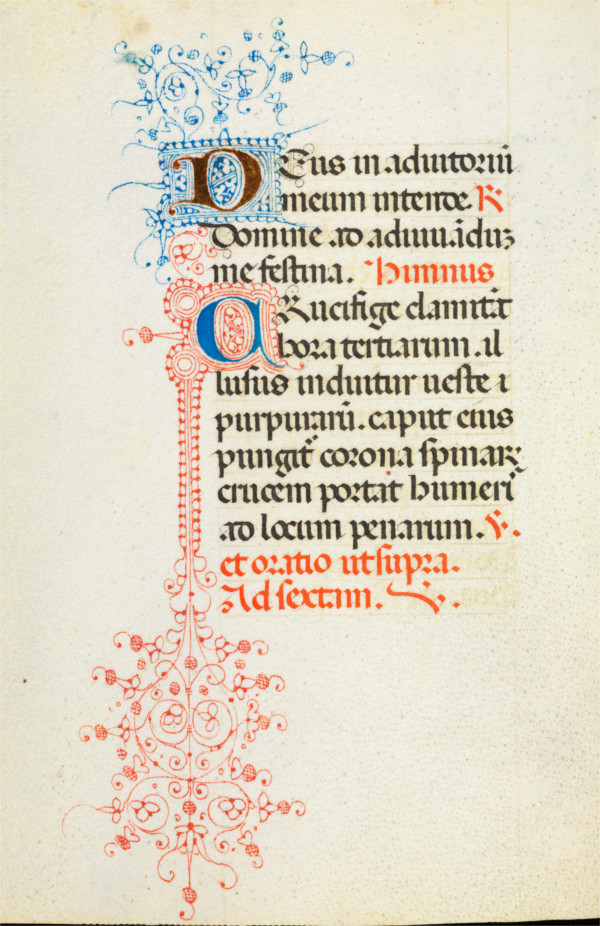 DEus in adiutoriū
meum intende. R
Domine ad adiuuādūꝫ
me festina. Himnus
CRucifige clamitāt
hora tertiarum. il
lusus induitur ueste i
purpurarū. caput eius
pungit᷑ corona spinaꝝ
crucem portat humeri᷑
ad locum penarum. V.
et oratio ut supra.
Ad sextam. V.